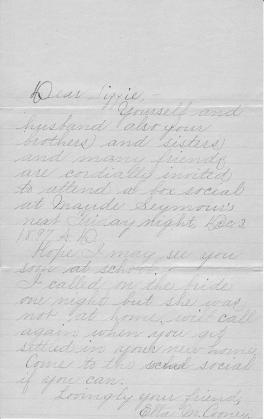 Dear Lizzie,-
Yourself and
husband also your
brothers and sisters
and many friends
are cordially invited
to attend a box social
at Maude Seymour's
next Friday night, Dec 3
1897 A. D.
Hope I may see you
soon at school.
I called on the bride
one night but she was
not at home. will call
again when you get
settled in your new home
Come to the social
if you can.
Lovingly your friend,
M.